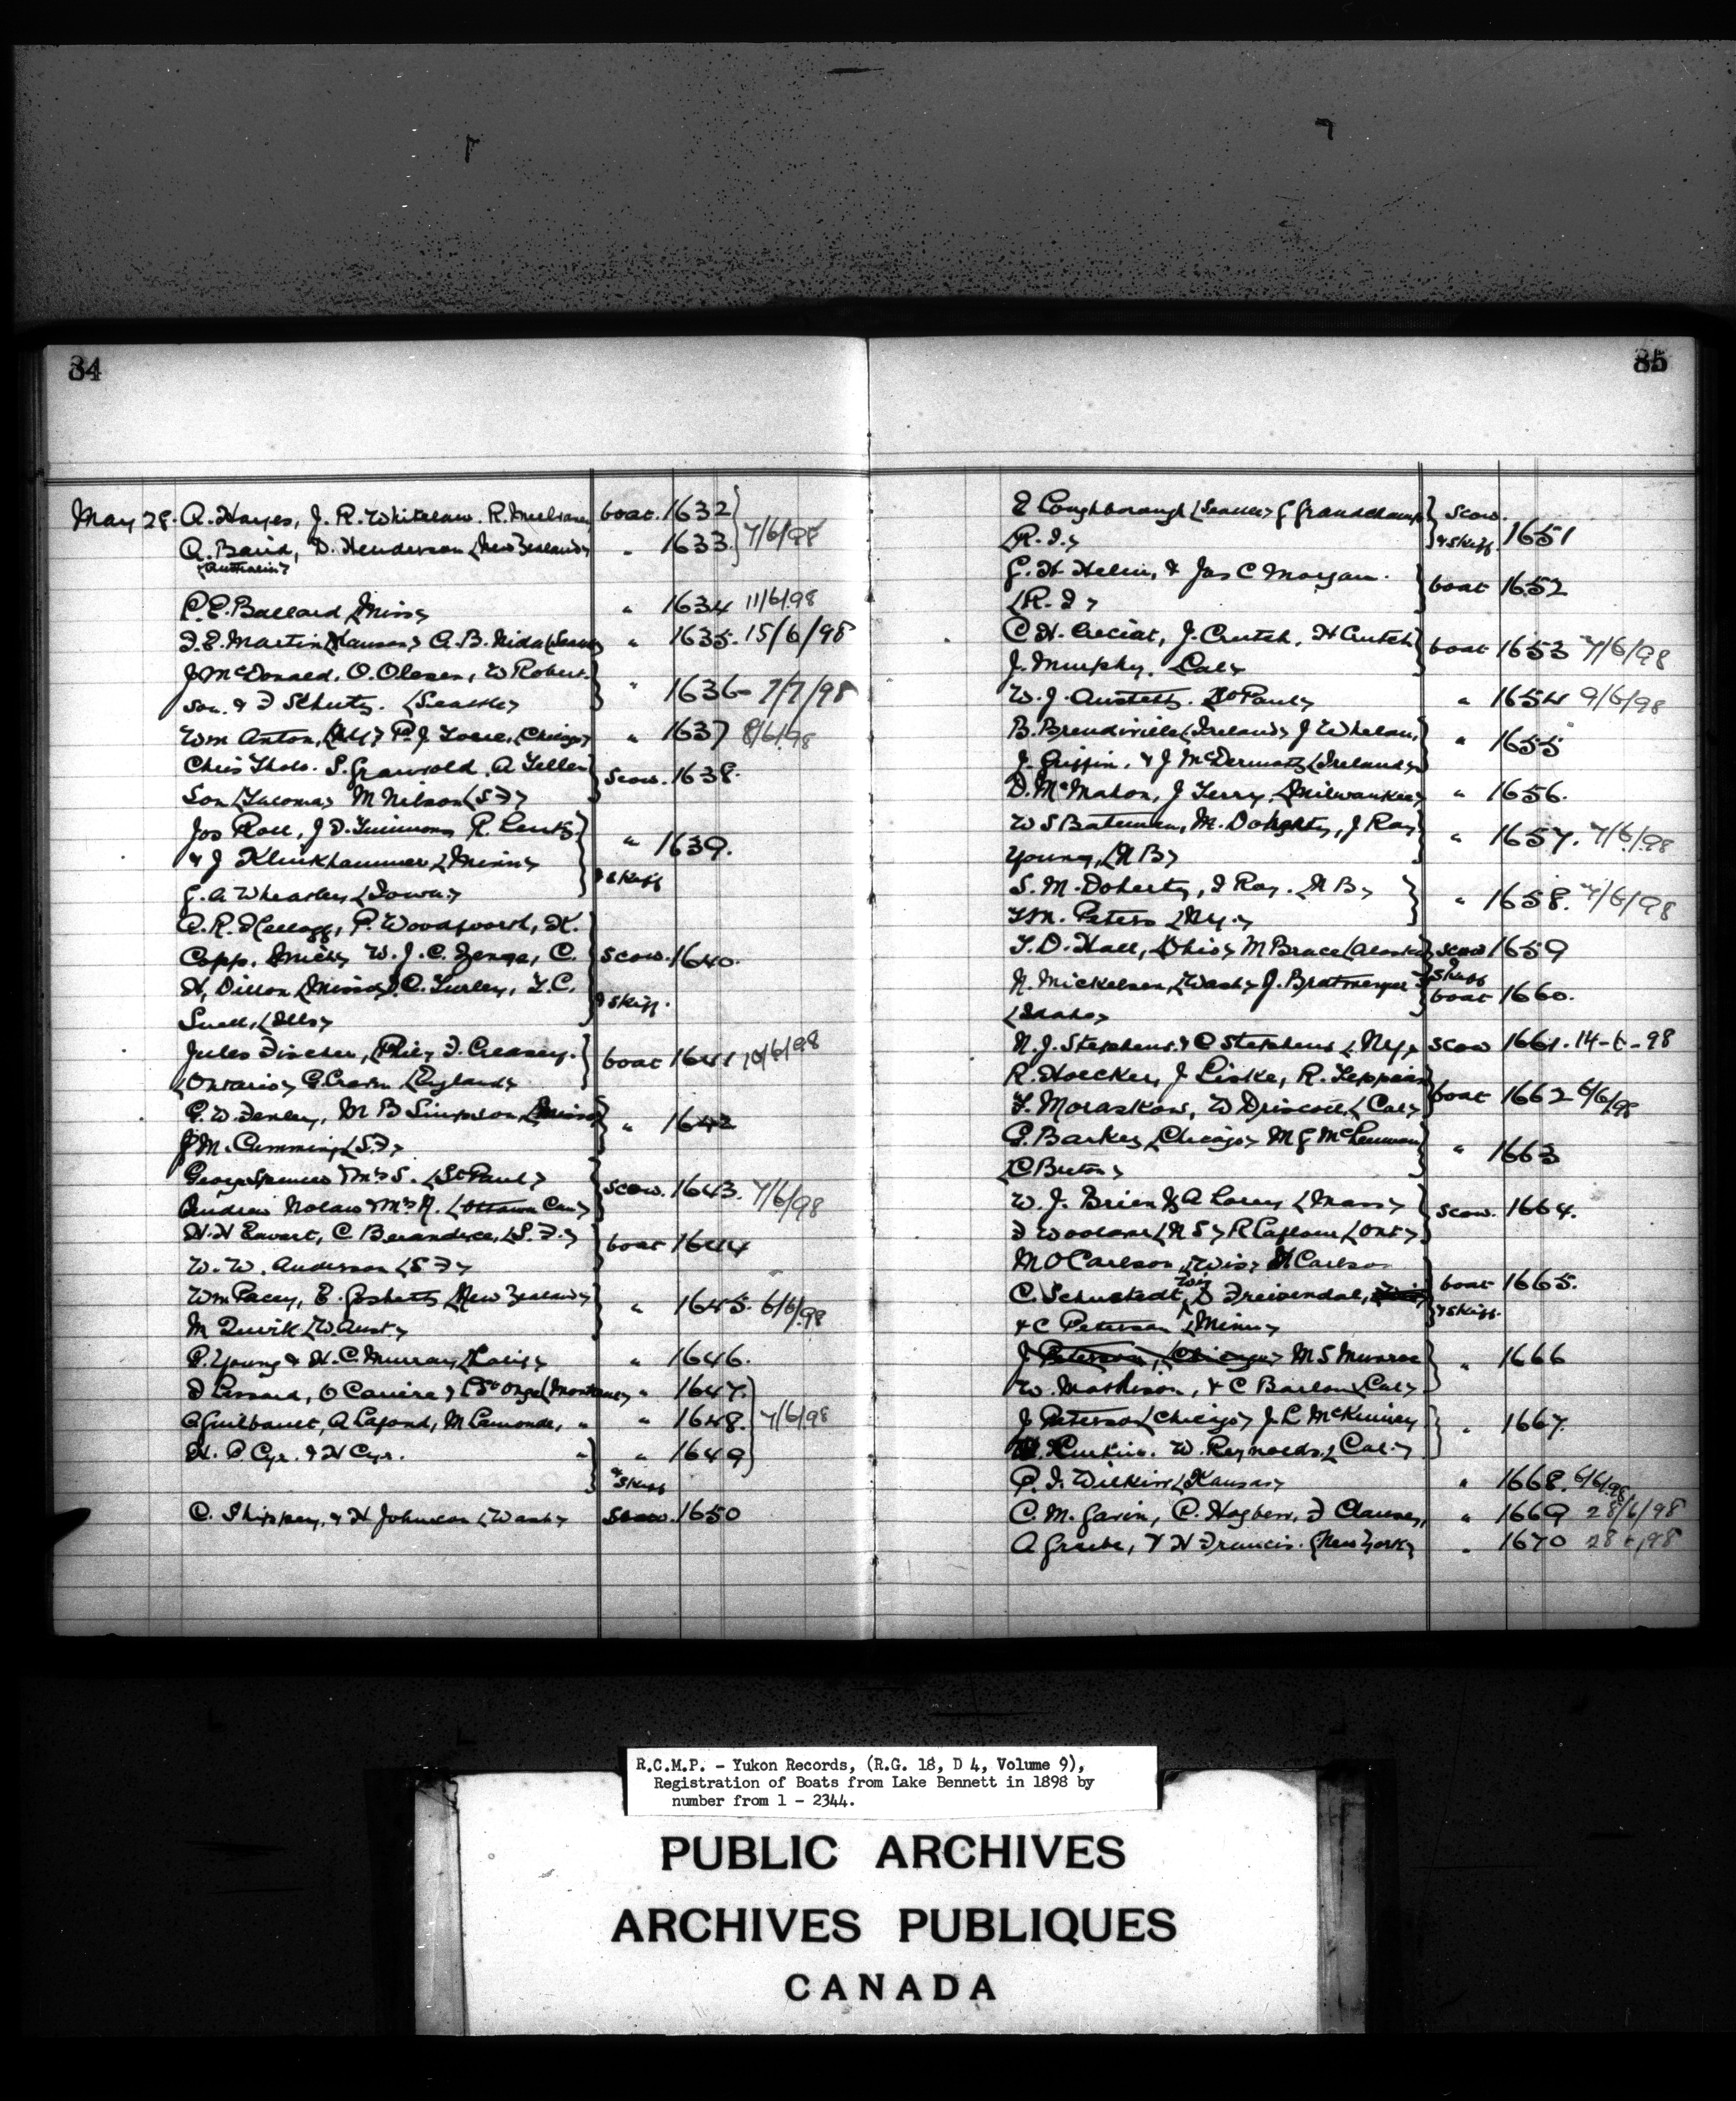 84
May 28. A. Hayes, J. R. Whitelaw. R. boat. 1632
A. Baird, D. Henderson (New Zealand) " 1633. 7/6/98
(Australia)
C. E. Ballard (Miss) " 1634 11/6/98
F. E. Martin (Kansas) A. B. Nida " 1635. 15/6/98
J McDonald, O. Olesen, W Robert-
son. & F Schutz. (Seattle) " 1636 - 7/7/98
Wm Anton, P. J. (Chicago) " 1637 8/6/98
Chris Tholo. S. Granvold. A Tellef
Son (Tacoma) M Nilson (S F) Scow. 1638.
Jos Roll, J D. Timmons R. Lentz
& J Klinkhammer (Minn) " 1639.
G. A Wheatley (Iowa) & Skiff
A. R. Kellogg, P. Woodworth, K.
Copp. (Mich) W. J. C. Zenge, C. Scow. 1640.
H, Dillon (Misso) C. Turley, T. C. & Skiff.
Snell, (Ills)
Jules Fischer, (Phil) F. Creasey.
(Ontario) G. (England) boat 1641 10/6/98
G. W. Fenley, M B Simpson (Misso)
J M. Cumming (S. F) " 1642
George Spencer & Mrs S. (St Paul)
Andrew Nolan & Mrs N. (Ottawa Can) Scow. 1643. 7/6/98
H. H Ewart, C (S. F.)
W. W. Anderson (S F) boat 1644
Wm Pacey, E. (New Zealand)
M Quvik (W. Aust) " 1645. 6/6/98
P. Young & H. C. Murray, " 1646.
D Lessard, O Cariere & C St Onge (Montana) " 1647.
A Guilbault, A Lafond, M Lamonde, " " 1648. 7/6/98
H. P Cyr. & H Cyr. " " 1649
& Skiff
C. Shippey, & H Johnson (Wash) Scow. 1650
85
E Loughborough (Seattle) G Grandchamp Scow.
(R. I.) & Skiff. 1651
G. H. Helin, & Jas C Morgan.
(R. I) boat 1652
C H. Creciat, J. Crutch, H Crutch
J. Murphy. (Cal) boat 1653 7/6/98
W. J. Austett. (St Paul) " 1654 9/6/98
B. Brendiville (Ireland) J Whelan,
J. Griffin. & J McDermott (Ireland) " 1655
D. McMahon, J Terry, (Milwaukee) " 1656.
W S Bateman, M. Doherty, J Ray
Young, (N B) " 1657. 7/6/98
S. M. Doherty, I Ray. (N B)
T M. Peters (N.Y.) " 1658. 7/6/98
T. D. Hall, (Ohio) M Brace (Alaska) scow 1659
Skiff
N. Mickelsen, (Wash) J. boat 1660.
(Idaho)
N. J. Stephens & C Stephens (N.Y) scow 1661. 14-6-98
R. Hoecker, J Liske, R.
T. Moraskow, W Driscoll, (Cal) boat 1662 6/6/98
G. Barkey (Chicago) M G McLennan
(C Breton) " 1663
W. J. Brien & A Larey (Mass)
F Woodland (N S) R Laflour (Ont) scow. 1664.
M O Carlson (Wis) H Carlson
Wis
C. Schustedt, D Freisendal, boat 1665.
& C Peterson (Minn) & Skiff.
J Peterson, (Chicago) M S Munroe
W. Mathison, & C Barlow (Cal) " 1666
J Peterson (Chicago) J. L McKinney
W. Reynolds. (Cal.) " 1667.
P. I. Wilkins (Kansas) " 1668. 6/6/98
C. M. Gavin, C. Hogberr, F Clausey, " 1669 28/6/98
A Grube, & H Francis. (New York) " 1670 28 6/98
R.C.M.P. - Yukon Records, (R.G. 18, D 4, Volume 9),
Registration of Boats from Lake Bennett in 1898 by
number from 1 - 2344.
PUBLIC ARCHIVES
ARCHIVES PUBLIQUES
CANADA